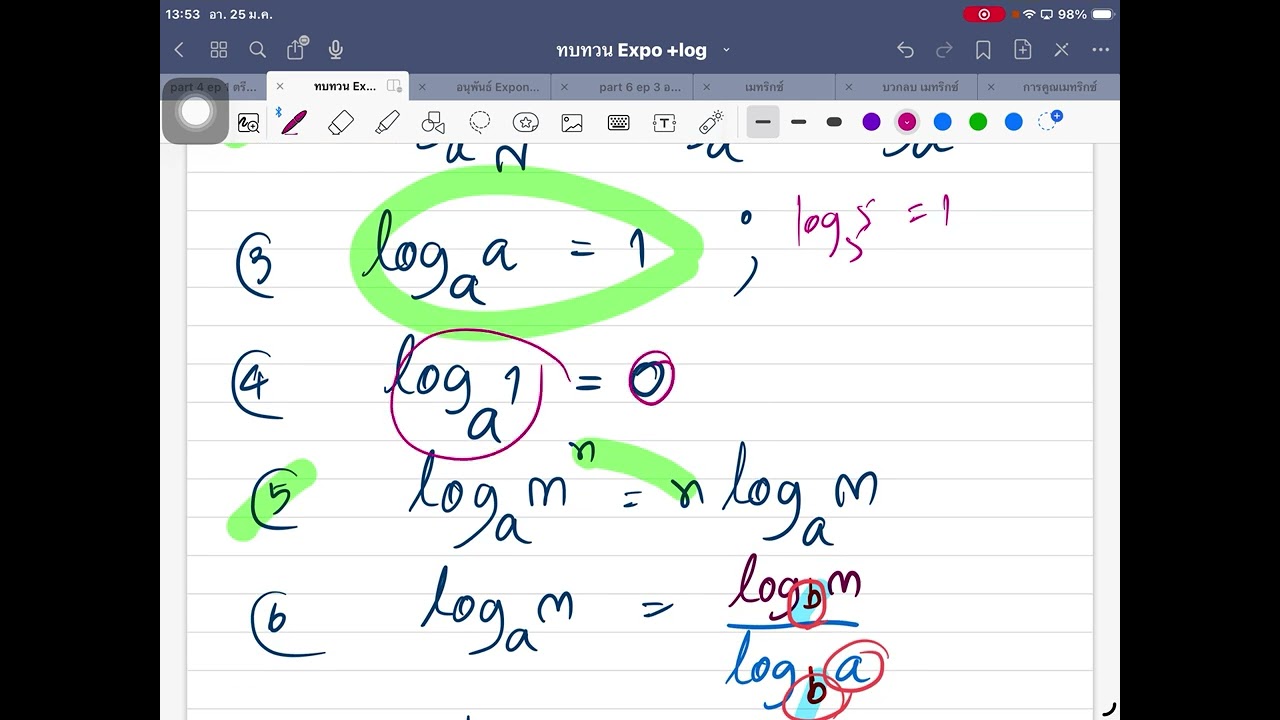 13:53 อา. 25 ม.ค. 98%
ทบทวน Expo +log
part 4 ep 1 ตรี... ทบทวน Ex... อนุพันธ์ Expon... part 6 ep 3 อ... เมทริกซ์ บวกลบ เมทริกซ์ การคูณเมทริกซ์
③ logₐ a = 1 ; log₅ 5 = 1
④ logₐ 1 = 0
⑤ logₐ mⁿ = n logₐ m
⑥ logₐ m = log_b m
log_b a